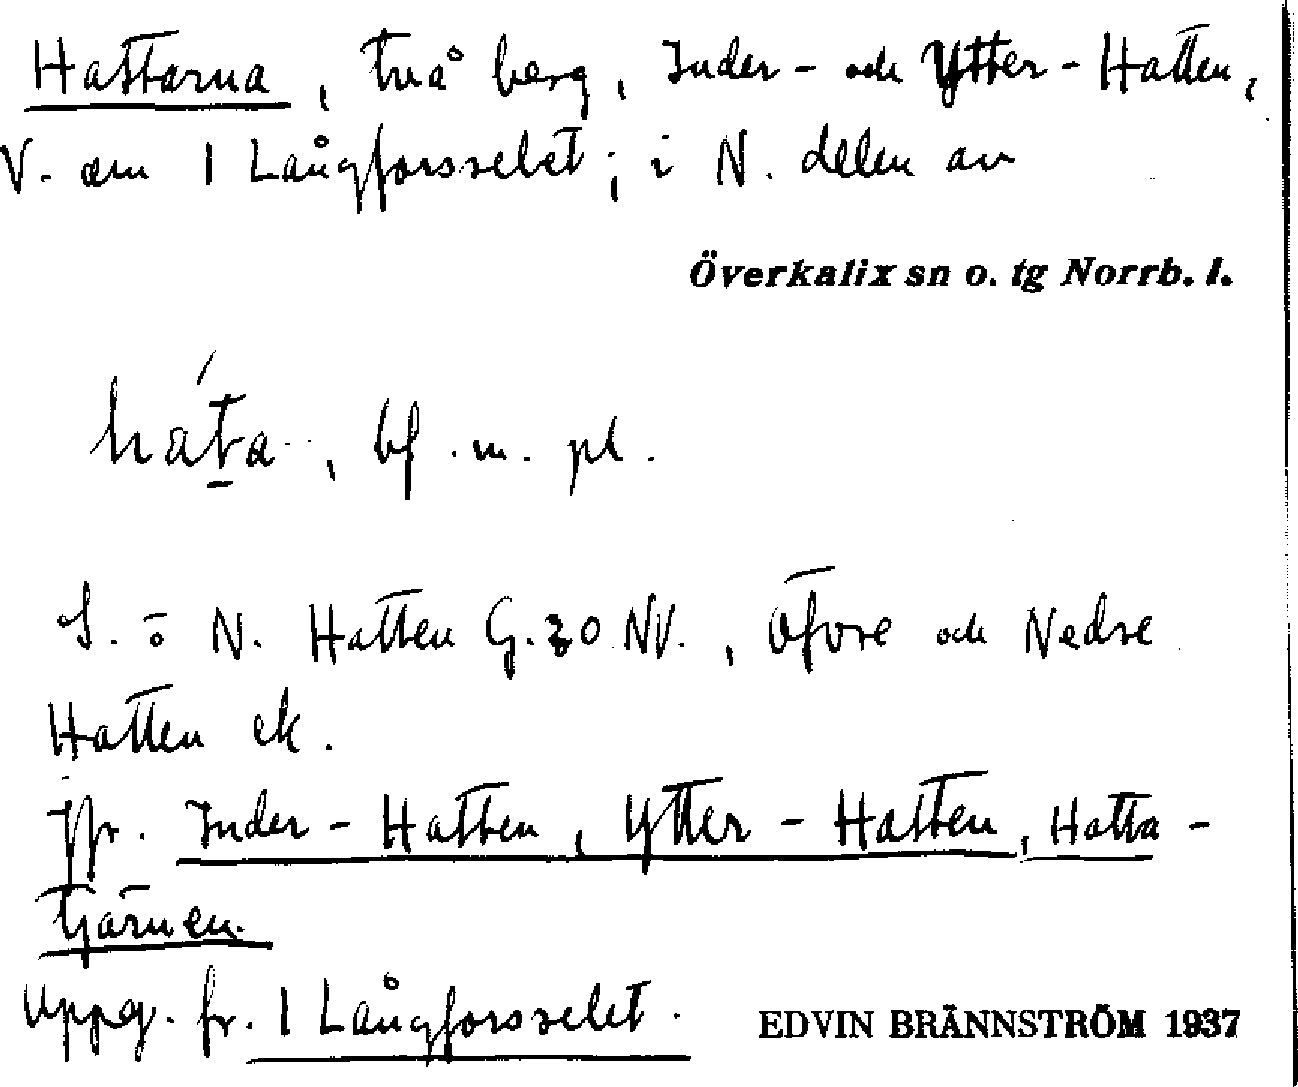 Hattarna, två berg, Inder- och Ytter-Hatten,
V. om 1 Långforsselet; i N. delen av
Överkalix sn o. tg Norrb. l.
háta, bf. m. pl.
S. ö N. Hatten G. 30 NV., Öfvre och Nedre
Hatten ek.
Jfr. Inder-Hatten, Ytter-Hatten, Hatta-
tjärnen.
Uppg. fr. 1 Långforsselet.
EDVIN BRÄNNSTRÖM 1937